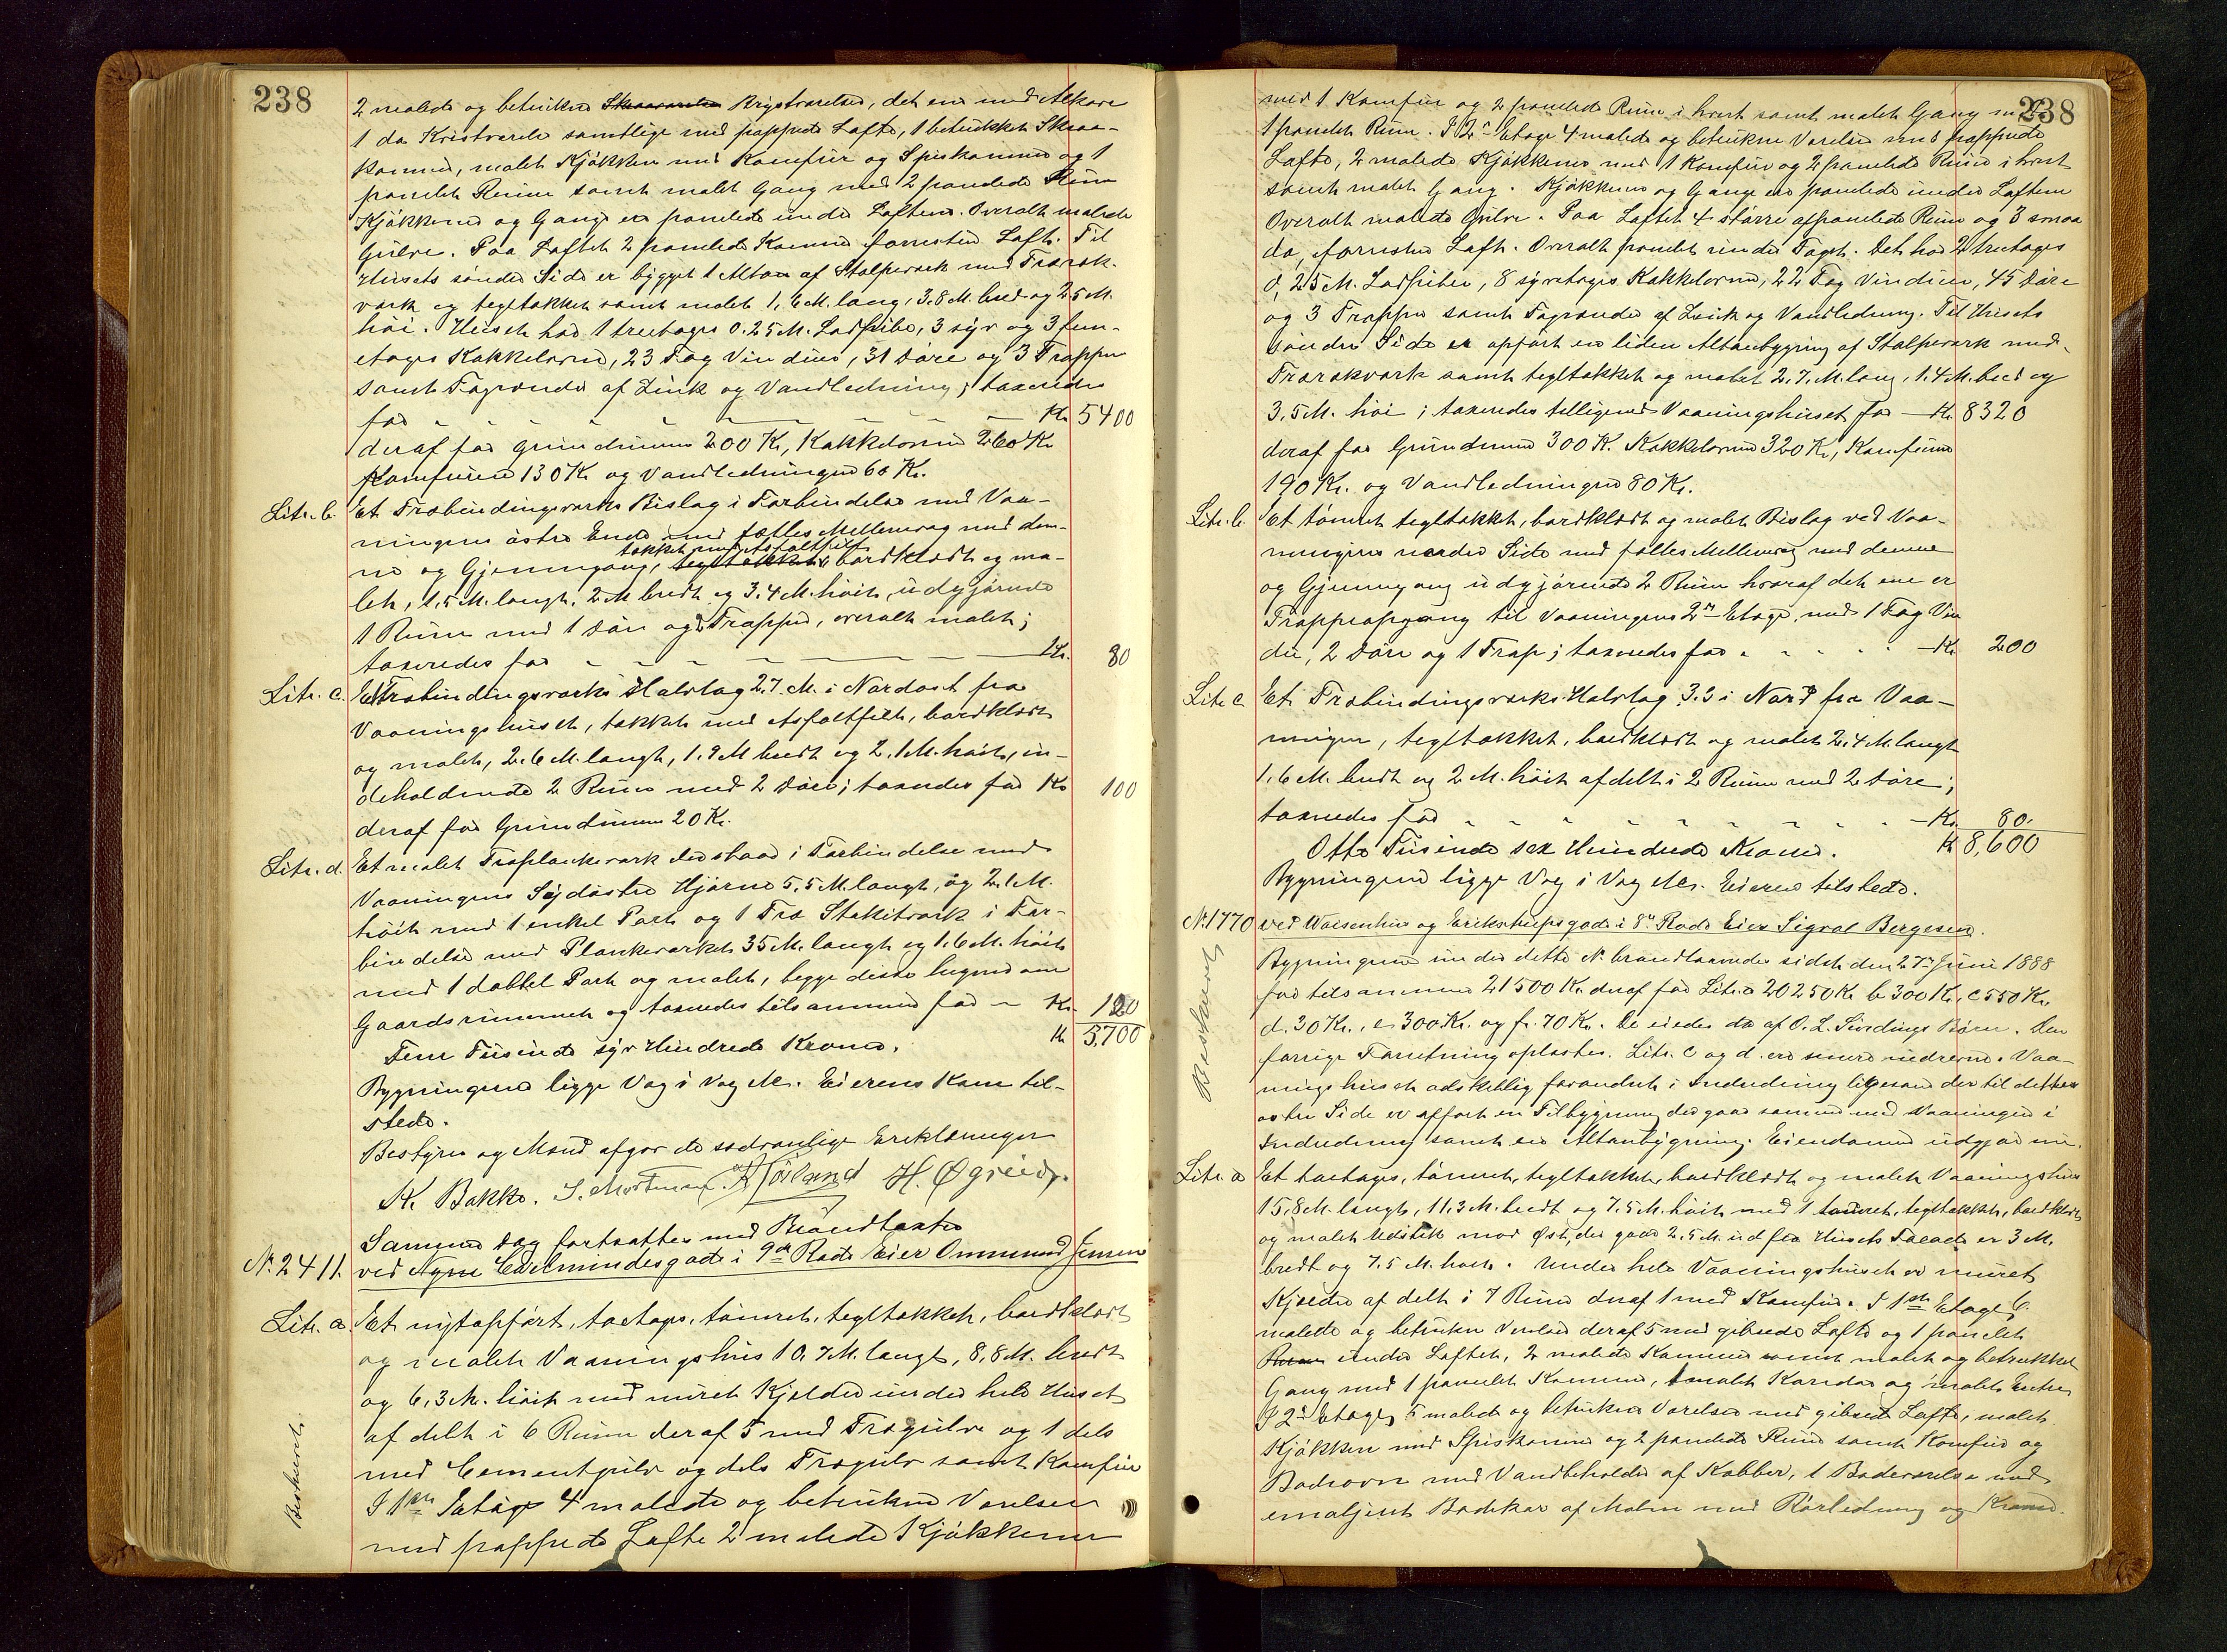 238
2 malede og betrukne Skraavarelse Kvistvarelser, det ene med Alkove
1 do Kvistvarelse samtlige med pappede Lofte, 1 betrukket Skraa-
kammer, malet Kjøkken med Komfur og Spiskammer og 1
panelet Ruum samt malet Gang med 2 panelede Rum
Kjøkkenet og Gange ere panelede under Loftene. Overalt malede
Gulve. Paa Loftet 2 panelede Kamre forresten Loft. Til
Husets søndre Side er bygget 1 Altan af Stolpeværk med Træræk-
værk og tegltækket samt malet 1,6 M. lang, 3,8 M. bred og 2,5 M.
høi. Huset har 1 treetages 0.25 M. Ladpibe, 3 syv og 3 fem-
etages Kakkelovne, 23 Fag Vinduer, 31 Døre og 3 Trapper
samt Tagrender af Zink og Vandledning; taxeredes
for - - - - - - Kr. 5400
deraf for Grundmuren 200 Kr, Kakkelovnene 260 Kr
Komfuren 130 Kr og Vandledningen 60 Kr.
Litr. b. Et Træbindingsværks Bislag i Forbindelse med Vaa-
ningens østre Ende med fælles Mellemvæg med den-
tækket med Asfaltfilt
ne og Gjennemgang, tegltækket, bordklædt og ma-
let, 1,5 M. langt, 2 M bredt og 3,4 M. høit, udgjørende
1 Rum med 1 Dør og 2 Trapper, overalt malet;
taxeredes for - - - - Kr. 80
Litr. c. Et Træbindingsværks Halvtag 2,7 M. i Nordost fra
Vaaningshuset, tækket med Asfaltfilt, bordklædt
og malet, 2,6 M. langt, 1,9 M bredt og 2,1 M. høit, in-
deholdende 2 Rum med 2 Døre; taxeredes for Kr 100
deraf for Grundmuren 20 Kr.
Litr. d. Et malet Træplankeværk der staar i Forbindelse med
Vaaningens Sydøstre Hjørne 5,5 M. langt, og 2,1 M.
høit med 1 enkel Port og 1 Træ Stakitværk i For-
bindelse med Plankeværket 35 M. langt og 1,6 M. høit
med 1 dobbel Port og malet, begge disse hegner om
Gaardsrummet og taxeredes tilsammen for - Kr. 120
Fem Tusinde syv Hundrede Kroner. Kr 5,700
Bygningerne ligge Væg i Væg &c. Eierens Kone til-
stede.
Bestyrer og Mænd afgav de sædvanlige Erklæringer
K. Bakke. S. Mortensen. A Hörland H. Øgreid.
Samme Dag fortsattes med Brandtaxter
N. 2411. ved Nyere Edelmindesgade i 9de Rode Eier Ommund Jensen
Litr. a. Et nytopført, toetages, tømret, tegltækket, bordklædt
og malet Vaaningshus 10,7 M. langt, 8,8 M. bredt
og 6,3 M. høit med muret Kjelder under hele Huset
afdelt i 6 Rum deraf 5 med Trægulve og 1 dels
med Cementgulv og dels Trægulv samt Komfur
I 1ste Etage 4 malede og betrukne Værelser
med pappede Lofte 2 malede Kjøkkener
Beskrevet.
238
med 1 Komfur og 2 panelede Rum i hvert samt malet Gang med
1 panelet Rum. I 2den Etage 4 malede og betrukne Værelser med pappede
Lofte, 2 malede Kjøkkener med 1 Komfur og 2 panelede Rum i hvert
samt malet Gang. Kjøkkener og Gange ere panelede under Loftene
Overalt malede Gulve. Paa Loftet 4 større afpanelede Rum og 3 smaa
do, forresten Loft. Overalt panelet under Taget. Det har 2 treetages
0,25 M. Ladpiber, 8 syvetages Kakkelovne, 22 Fag Vinduer, 45 Døre
og 3 Trapper samt Tagrender af Zink og Vandledning. Til Husets
søndre Side er opført en liden Altanbygning af Stolpeværk med
Trærækværk samt tegltækket og malet 2,7 M. lang, 1,4 M. bred og
3,5 M. høi; taxeredes tilligemed Vaaningshuset for - Kr. 8320
deraf for Grundmuren 300 Kr. Kakkelovnene 320 Kr, Komfurene
190 Kr. og Vandledningen 80 Kr.
Litr. b. Et tømret tegltækket, bordklædt og malet Bislag ved Vaa-
ningens nordre Side med fælles Mellemvæg med denne
og Gjennemgang udgjørende 2 Rum hvoraf det ene er
Trappeopgang til Vaaningens 2den Etage, med 1 Fag Vin
due, 2 Døre og 1 Trap; taxeredes for - - - - Kr 200
Litr. c. Et Træbindingsværks Halvtag 3,3 i Nord fra Vaa-
ningen, tegltækket, bordklædt og malet 2,4 M. langt
1,6 M. bredt og 2 M. høit afdelt i 2 Rum med 2 Døre;
taxeredes for - - - - - - Kr. 80.
Otte Tusinde sex Hundrede Kroner. Kr 8,600
Bygningerne ligge Væg i Væg &c. Eieren tilstede.
N. 1770 ved Waisenhus og Erikstrupsgade i 8de Rode Eier Sigval Bergesen.
Bygningerne under dette N. brandtaxeredes sidst den 27de Juni 1888
for tilsammen 21500 Kr. deraf for Litr. a 20250 Kr b 300 Kr, c 550 Kr,
d. 30 Kr., e 300 Kr. og f. 70 Kr. De eiedes da af O. L. Sundings Børn. Den
forrige Forretning oplæstes. Litr. c og d. ere senere nedrevne. Vaa-
ningshuset adskillig forandret i Indredning ligesom der til dettes
østre Side er opført en Tilbygning der gaar sammen med Vaaningen i
Indredning samt en Altanbygning. Eiendommen udgjør nu.
Litr. a Et toetages, tømret, tegltækket, bordklædt og malet Vaaningshus
15,8 M. langt, 11,3 M. bredt og 7,5 M. høit med 1 tømret, tegltækket, bordklædt
og malet Udstik mod Øst, der gaar 2,5 M. ud fra Husets Facade er 3 M.
bredt og 7,5 M. høit. Under hele Vaaningshuset er muret
Kjelder afdelt i 7 Rum deraf 1 med Komfur. I 1ste Etage 6
malede og betrukne Værelser deraf 5 med gibsede Lofte og 1 panelet
Rum under Loftet, 2 malede Kammer samt malet og betrukket
Gang med 1 panelet Kammer, 1 malet Koridor og malet Entre
I 2den Etage, 5 malede og betrukne Værelser med gibsede Lofte, malet
Kjøkken med Spiskammer og 2 panelede Rum samt Komfur og
Badeovn med Vandbeholder af Kobber, 1 Badeværelse med
emaljeret Badekar af Malm med Rørledning og Kraner.
Beskrevet